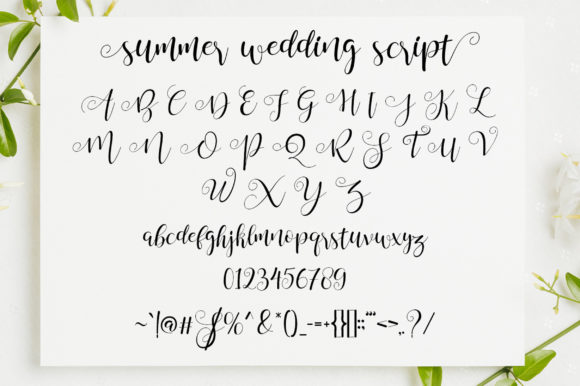 summer wedding script
A B C D E F G H I J K L
M N O P Q R S T U V
W X Y Z
abcdefghijklmnopqrstuvwxyz
0123456789
~`!@#$%^&*()_-=+{}[]:;"'<>,.?/